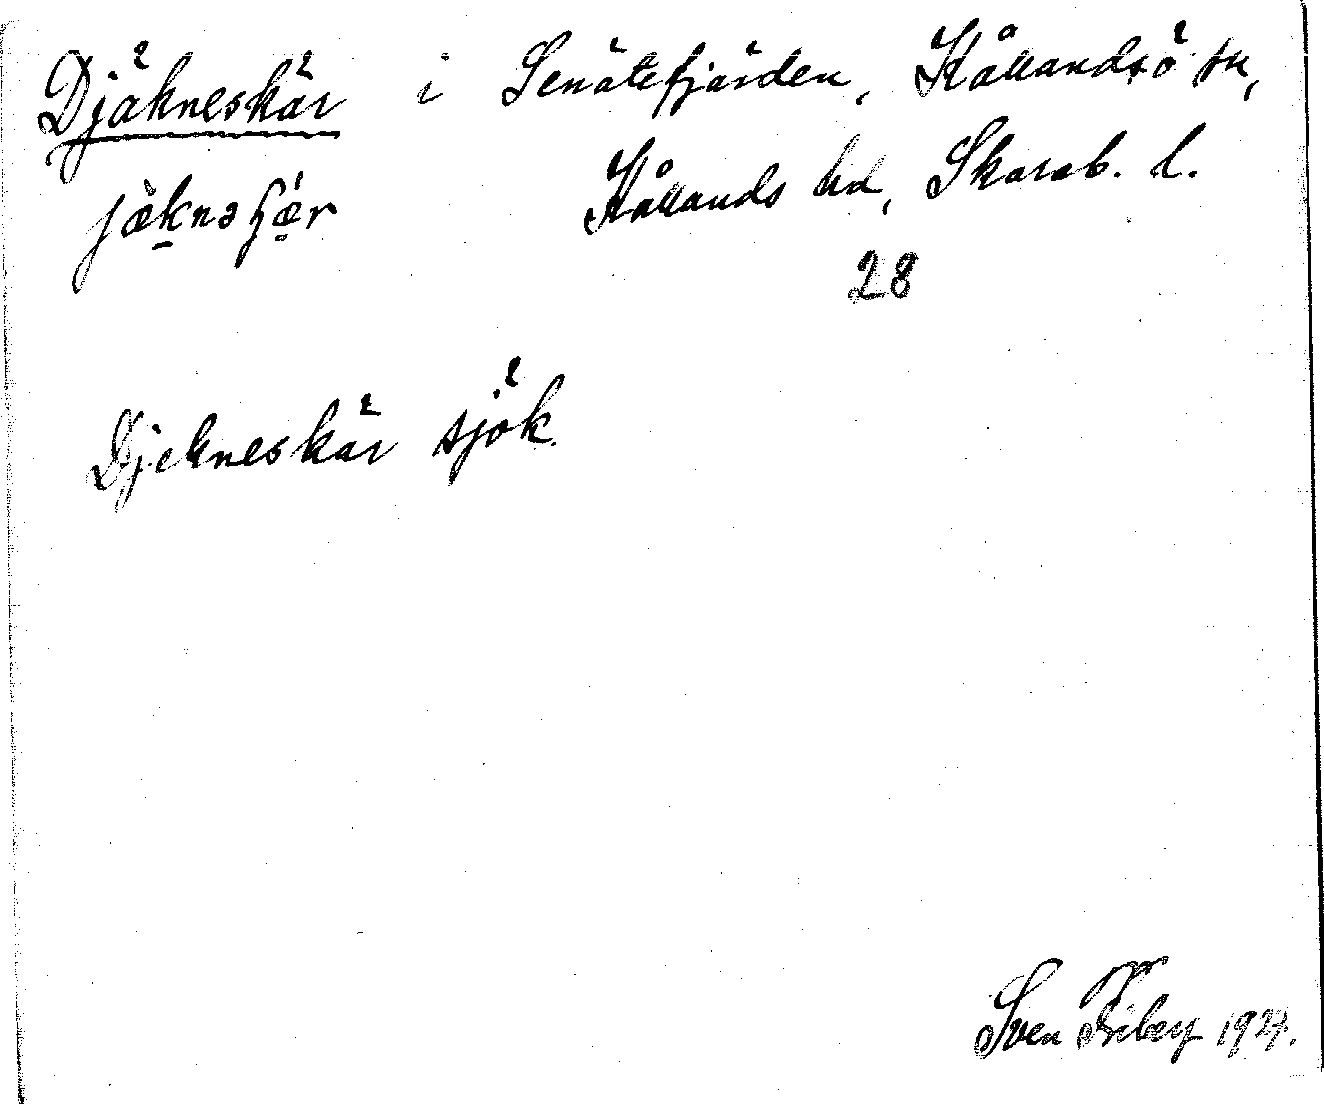 Djäkneskär i Senätefjärden, Kållandsö sn,
jäknəʃær Kållands hd, Skarab. l.
28
Djekneskär sjök.
Sven Friberg 1927.